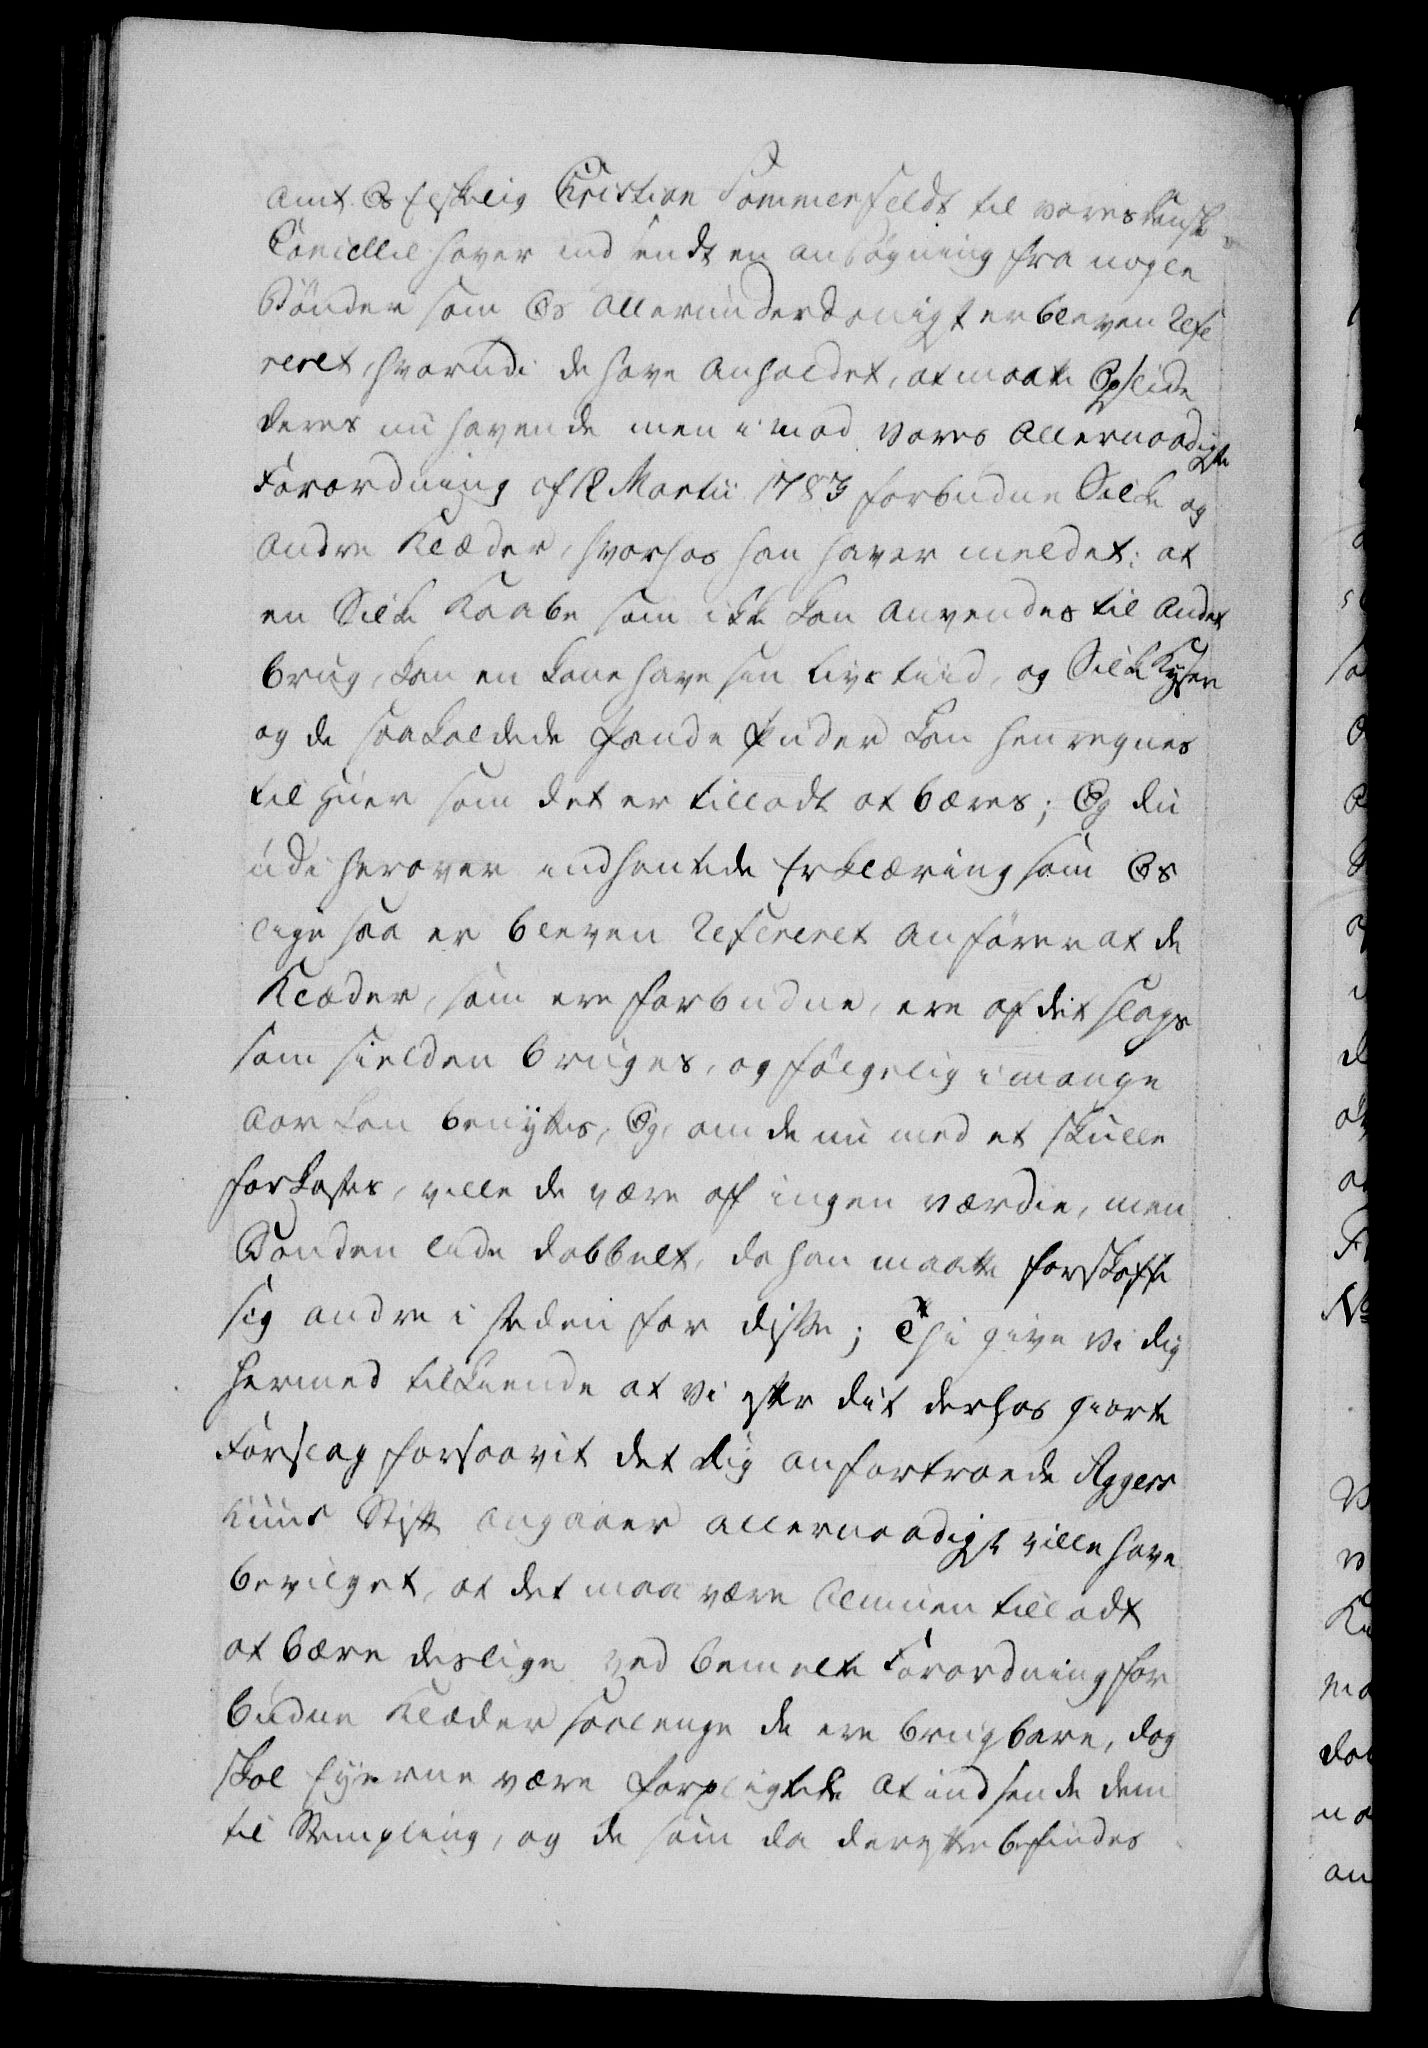 Amt Os Elskelig Christian Sommerfeldt til vores danske
Cancellie haver ind sendt en ansøgning fra nogle
Bønder som Os allerunderdanigst er bleven refe
reret, hvorudi de have anholdet, at maate Opslide
deres nu havende men imod vores allernaadigste
Forordning af 12 Martii 1783 forbudne Silke og
andre Klæder, hvorhos han haver meldet: at
en Silke Kaabe som ikke kan anvendes til andet
brug, kan en kone have sin livs tiid, og Silke Kyser
og de saakaldede Pande Puder kan henregnes
til Huer som det er tilladt at bæres; Og du
udi herover indhentede Erklæring som Os
lige saa er bleven refereret anfører at de
Klæder, som ere forbudne, ere af dit slags
som sielden bruges, og følgelig i mange
Aar kan benyttes, Og, om de nu med et skulle
forkastes, ville de være af ingen værdie, men
Bonden lide dobbelt, da han maatte forskaffe
sig andre i steden for disse; Thi give vi dig
hermed tilkiende at vi efter dit derhos giorte
Forslag forsaavit det dig anfortroede Aggers
huus Stift angaaer allernaadigst ville have
bevilget, at det maa være Almuen tilladt
at bære deslige ved bemelte Forordning for
budne Klæder saalenge de ere brugbare, dog
skal Eyerne være forpligtede at indsende dem
til Stempling, og de som da derefter befindes